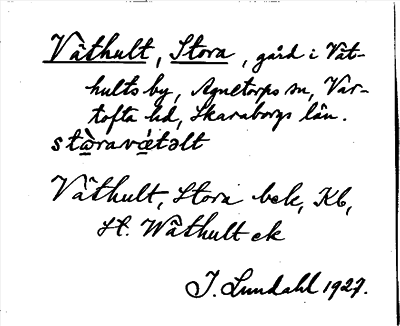 Våthult, Stora, gård i Våt-
hults by, Agnetorps sn, Var-
tofta hd, Skaraborgs län.
Våthult, Stora bek, Kb,
St. Wåthult ek
I. Lundahl 1927.